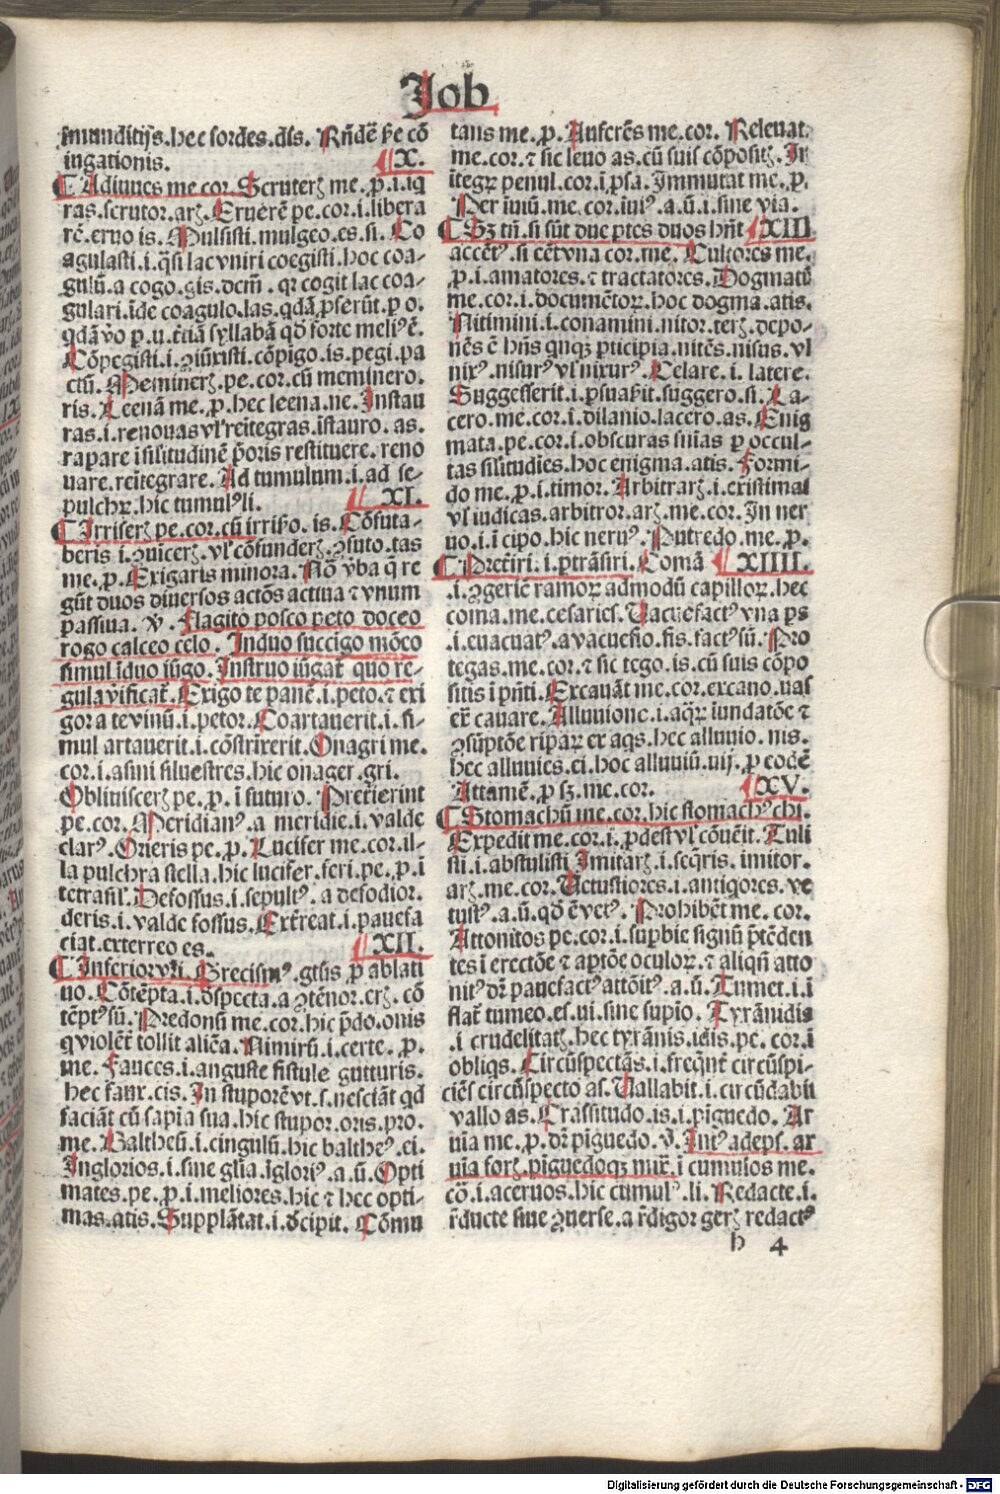 Job
ĩmunditijs.hec sordes.dis. Rñdẽ ꝟe cõ
iugationis. X.
Adiuues me cor. Scruterꝫ me.p.i.iq̃
ras.scrutor.arꝫ. Eruerẽ pe.cor.i.libera
rẽ.eruo is. Mulsisti.mulgeo.es.si. Co
agulasti.i.q̃si lac vniri coegisti.hoc coa-
gulũ.a cogo.gis.dcm̃.qꝛ cogit lac coa-
gulari.ĩde coagulo.las.qdã ꝓserũt.p o.
qdã ṽo p.u.tĩã syllabã qď forte meliꝰ ẽ.
Cõpegisti.i.ꝯiũxisti.cõpigo.is.pegi.pa
ctũ. Meminerꝫ.pe.cor.cũ meminero.
ris. Leenã me.p.hec leena.ne. Instau
ras.i.renouas vľ reĩtegras.ĩstauro.as.
rapare ĩ siľitudinẽ p̃oris restituere.reno
uare.reĩtegrare. Ad tumulum.i.ad se-
pulchꝝ.hic tumulꝰ li. XI.
Irriserꝫ pe.cor.cũ irriso.is. Cõfuta-
beris i.ꝯuĩcerꝫ.vľ cõfunderꝫ.ꝯfuto.tas
me.p. Exigaris minora. Nõ ṽba q̃ re
gũt duos diuersos actõs actiua ⁊ vnum
passiua. ꝟ. Flagito posco peto doceo
rogo calceo celo. Induo succigo mõco
simul ĩduo iũgo. Instruo iũgat̃ quo re-
gula ṽificat̃. Exigo te panẽ.i.peto.⁊ exi
gor a te vinũ.i.petor. Coartauerit.i.si-
mul artauerit.i.cõstrĩxerit. Onagri me.
cor.i.asini siluestres.hic onager.gri.
Obliuiscerꝫ pe.p.ĩ futuro. Preterierint
pe.cor. Meridianꝰ.a meridie.i.valde
clarꝰ. Orieris pe.p. Lucifer me.cor.il-
la pulchra stella.hic lucifer.feri.pe.p.ĩ
tetrasiľ. Defossus.i.sepultꝰ.a defodior.
deris.i.valde fossus. Exterreat.i.pauefa
ciat.exterreo es. XII.
Inferior vr̃i. Grecismꝰ.gr̃sis p ablati
uo. Cõtẽpta.i.ďspecta.a ꝯtẽnor.erꝫ.cõ
tẽptꝰ sũ. Predonũ me.cor.hic p̃do.onis
q violẽt̃ tollit aliẽa. Nimirũ.i.certe.p.
me. Fauces.i.anguste fistule gutturis.
hec faux.cis. In stuporẽ vt.s.nesciãt qd
faciãt cũ sapĩa sua.hic stupor.oris.pro.
me. Baltheũ.i.cingulũ.hic baltheꝰ.ei.
Inglorios.i.sine glĩa.ĩgloriꝰ.a.ũ. Opti
mates.pe.p.i.meliores.hic ⁊ hec opti-
mas.atis. Supplãtat.i.ďcipit. Cõmu
tans me.p. Auferẽs me.cor. Releuat.
me.cor.⁊ sic leuo as.cũ suis cõpositꝫ. In
ĩtegꝝ penul.cor.ĩ ꝓsa. Immutat me.p.
Per ĩuiũ.me.cor.ĩuiꝰ.a.ũ.i.sine via.
Sꝫ tñ.si sũt due ꝑtes duos hñt XIII
accẽtꝰ.si cẽt vna cor.me. Cultores me.
p.i.amatores.⁊ tractatores. Dogmatũ
me.cor.i.documẽtoꝝ.hoc dogma.atis.
Nitimini.i.conamini.nitor.terꝫ.depo-
nẽs ẽ hñs qnqꝫ pticipia.nitẽs.nisus.vľ
nixꝰ.nisurꝰ vľ nixurꝰ. Celare.i.latere.
Suggesserit.i.ꝓsuaẽit.suggero.si. La-
cero.me.cor.i.dilanio.lacero.as. Enig
mata.pe.cor.i.obscuras sñias ꝑ occul-
tas siľitudĩes.hoc enigma.atis. Formi-
do me.p.i.timor. Arbitrarꝫ.i.existimas
vľ iudicas.arbitror.arꝫ.me.cor. In ner
uo.i.ĩ cipo.hic neruꝰ. Putredo.me.p.
Preťiri.i.ptrãsiri. Comã XIIII.
.i.ꝯgeriẽ ramoꝝ admodũ capilloꝝ.hec
coma.me.cesaries. Uacuefactꝰ vna ps
.i.euacuatꝰ.a vacuefio.fis.factꝰ sũ. Pro
tegas.me.cor.⁊ sic tego.is.cũ suis cõpo
sitis ĩ pñti. Excauãt me.cor.excauo.uas
eст̃ cauare. Alluuione.i.aq̃ꝝ ĩundatõe ⁊
ꝯsũptõe ripaꝝ ex aqs.hec alluuio.nis.
hec alluuies.ei.hoc alluuiũ.uij.ꝑ eodẽ
Attamẽ.p sꝫ.me.cor. XV.
Stomachũ me.cor.hic stomachꝰ chi.
Expedit me.cor.i.ꝓdest vľ cõuẽit. Tuli
sti.i.abstulisti Imitarꝫ.i.seq̃ris.imitor.
arꝫ.me.cor. Uetustiores.i.antiqores.ve
tustꝰ.a.ũ.qď ẽ vetꝰ. Prohibẽt me.cor.
Attonitos pe.cor.i.suꝑbie signũ p̃tẽden
tes ĩ erectõe ⁊ aptõe oculoꝝ.⁊ aliqñ atto
nitꝰ dr̃ pauefactꝰ attõitꝰ.a.ũ. Tumet.i.ĩ
flat̃ tumeo.es.ui.sine supĩo. Tyrãnidis
.i.crudelitatꝫ.hec tyrãnis.idis.pe.cor.ĩ
obliqs. Circũspectãs.i.freqñt̃ circũspi-
ciẽs circũspecto as. Uallabit.i.circũdabit
vallo as. Crassitudo.is.i.pĩguedo. Ar
uĩa me.p.dr̃ pĩguedo.ꝟ. Intꝰ adeps.ar
uĩa forꝫ.pĩguedoqꝫ mixt̃.i cumulos me.
cõ.i.aceruos.hic cumulꝰ.li. Redacte.i.
r̃ducte siue ꝯuerse.a r̃digor gerꝫ redactꝰ
h 4
Digitalisierung gefördert durch die Deutsche Forschungsgemeinschaft - DFG